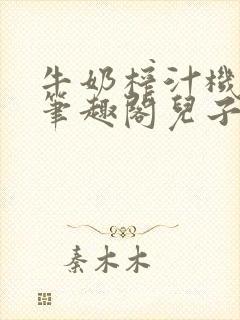 牛奶榨汁機
筆趣閣兒子
秦木木